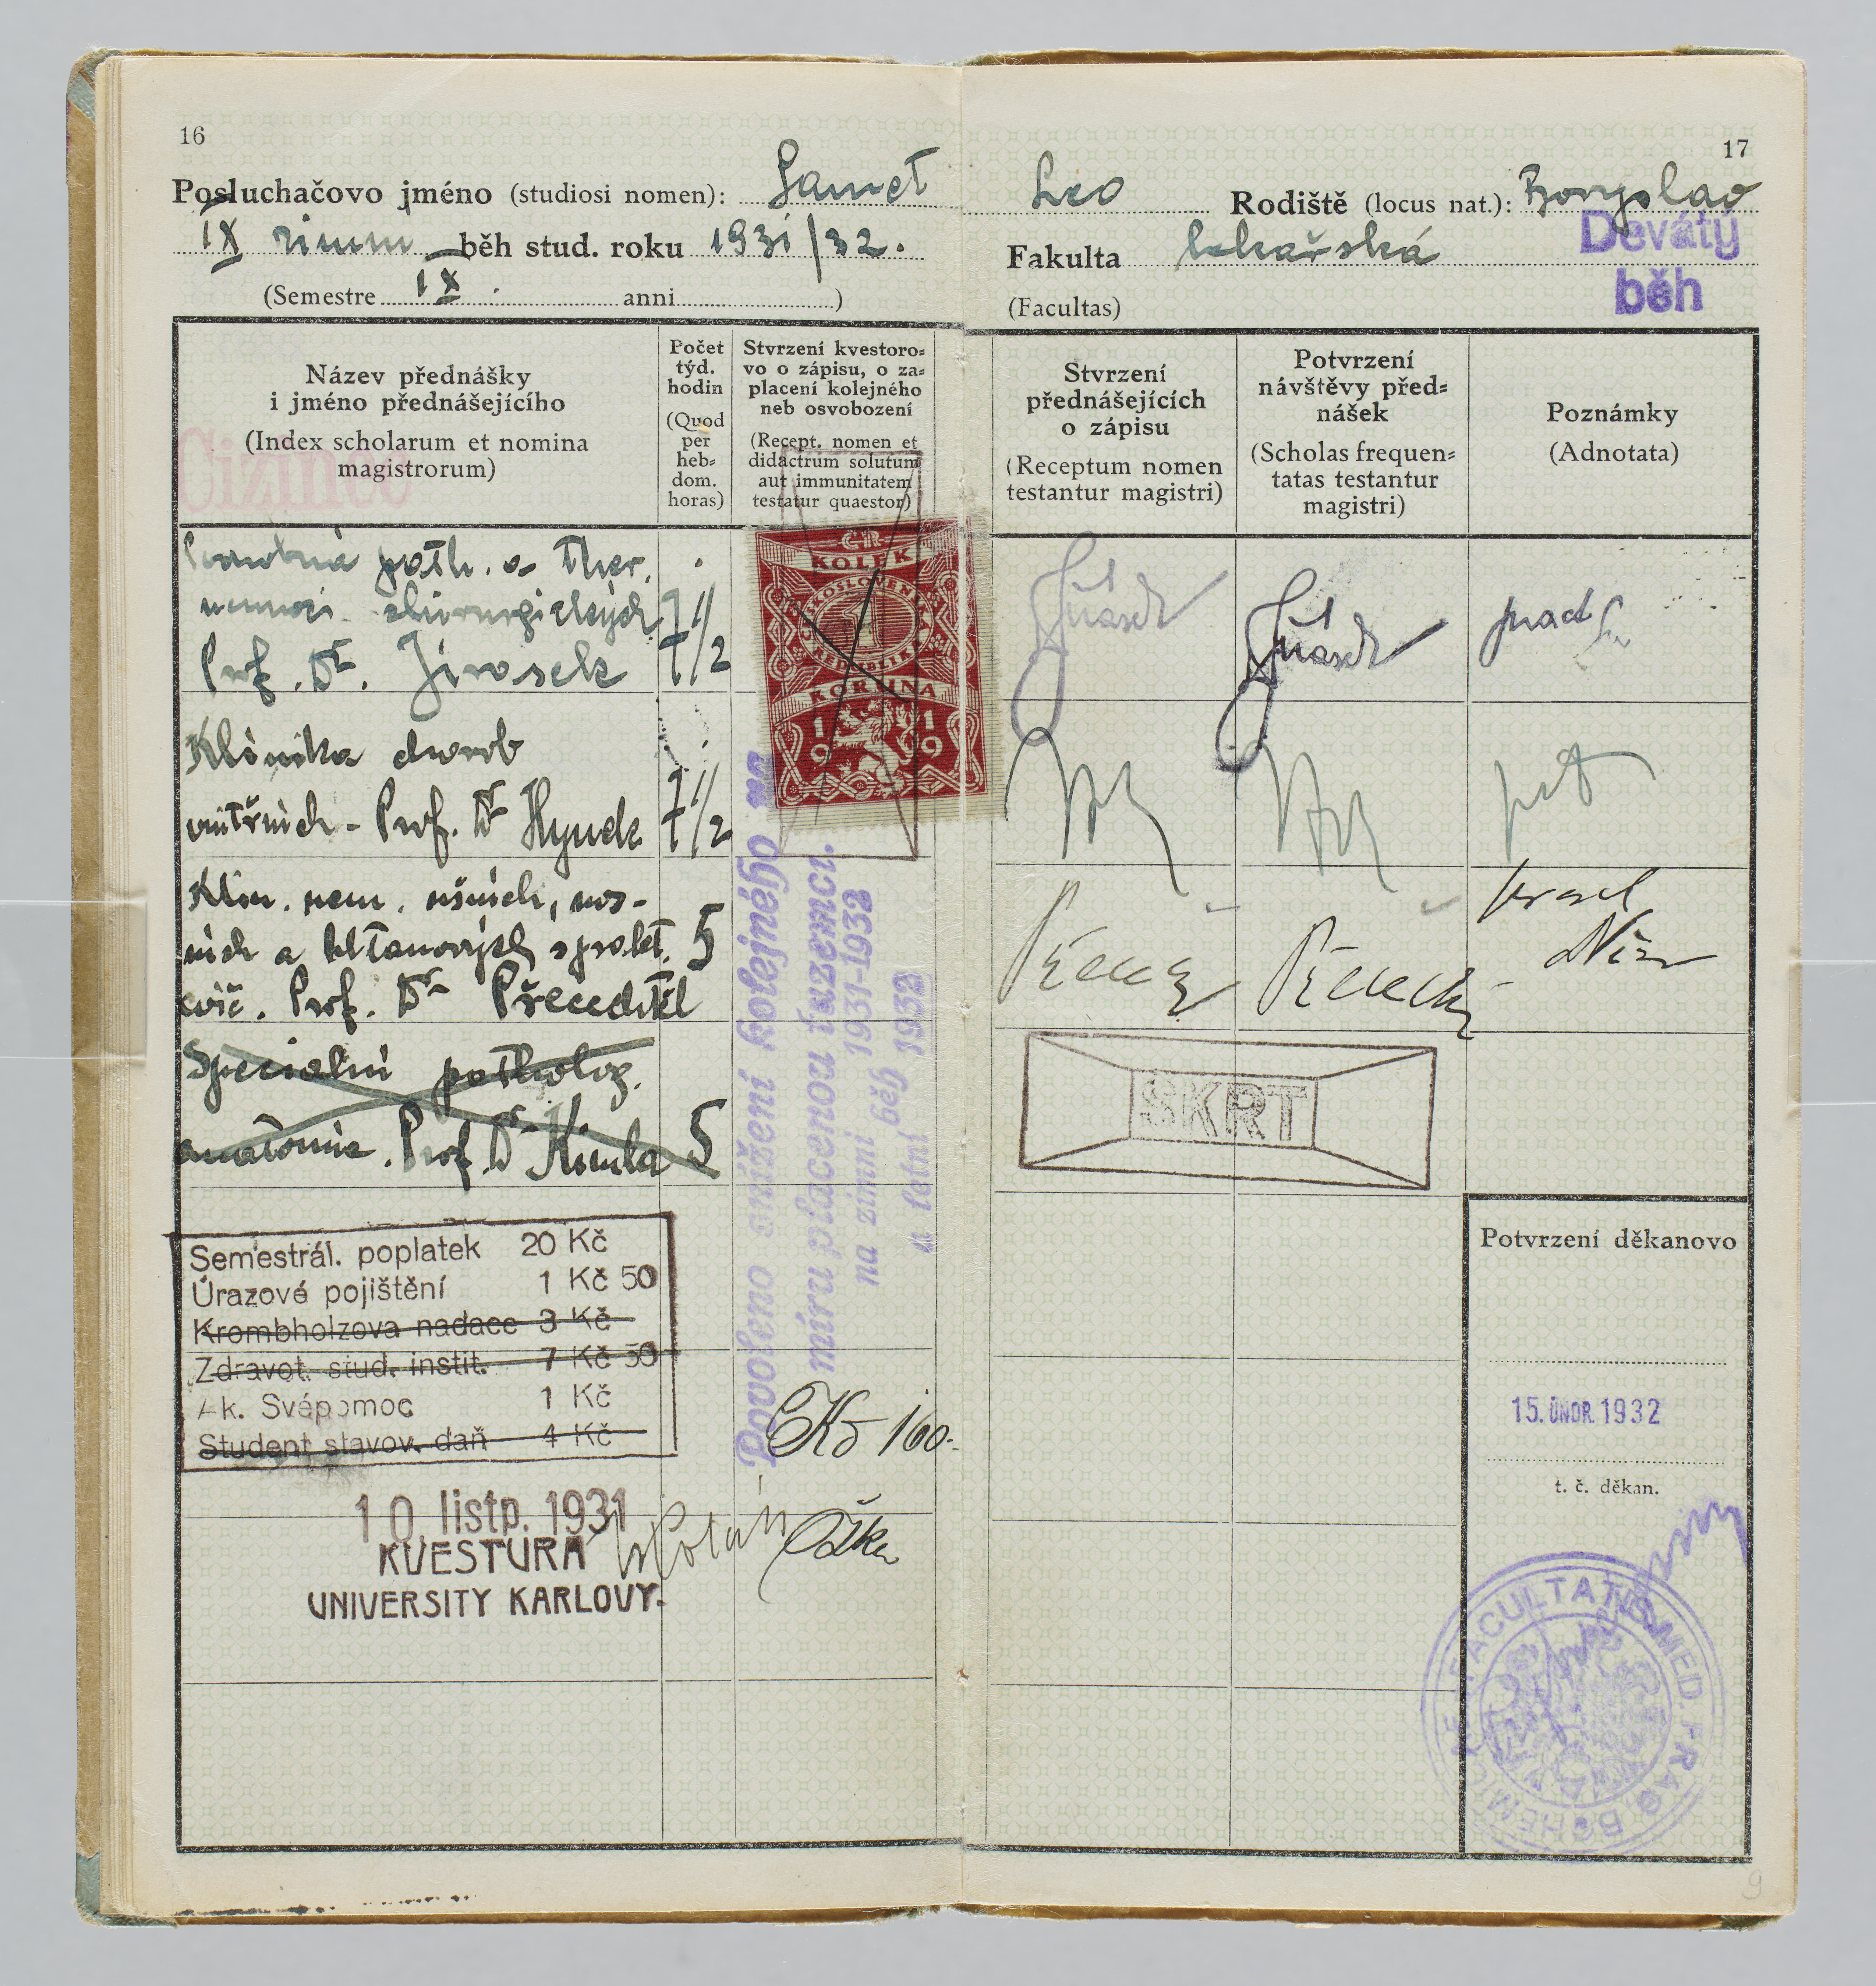 16
Posluchačovo jméno (studiosi nomen): Samet
IX zimní běh stud. roku 1931/32.
(Semestre IX. anni )
Název přednášky
i jméno přednášejícího
(Index scholarum et nomina
magistrorum)
Cizinec
Počet
týd.
hodin
(Quod
per
heb=
dom.
horas)
Stvrzení kvestoro=
vo o zápisu, o za=
placení kolejného
neb osvobození
(Recept. nomen et
didactrum solutum
aut immunitatem
testatur quaestor)
path. a ther.
nemocí chirurgických
Prof. Dr. Jirásek 7 1/2
Klinika chorob
vnitřních - Prof. Dr Hynek 7 1/2
Klin. nem. ušních, nos-
ních a hltanových s prakt. 5
cvič. Prof. Dr Přecechtěl
Specialní patholog.
anatomie. Prof. Dr Kimla 5
ČSR
KOLEK
ČESKOSLOVENSKÁ
1
REPUBLIKA
KORUNA
1919
Povoleno snížení kolejného na
míru placenou tuzemci.
na zimní běh 1931-1932
a letní běh 1932
Semestrál. poplatek 20 Kč
Úrazové pojištění 1 Kč 50
Krombholzova nadace 3 Kč
Zdravot. stud. instit. 7 Kč 50
Ak. Svépomoc 1 Kč
Student stavov. daň 4 Kč
Kč 160.-
10. listp. 1931
KVESTURA
UNIVERSITY KARLOVY.
17
Leo Rodiště (locus nat.): Boryslav
Fakulta lékařská
(Facultas)
Devátý
běh
Stvrzení
přednášejících
o zápisu
(Receptum nomen
testantur magistri)
Potvrzení
návštěvy před=
nášek
(Scholas frequen=
tatas testantur
magistri)
Poznámky
(Adnotata)
Jirásek
Jirásek
ŠKRT
Potvrzení děkanovo
15. ÚNOR. 1932
t. č. děkan.
FACULTATIS MED. PRAG. BOHEMICAE
9